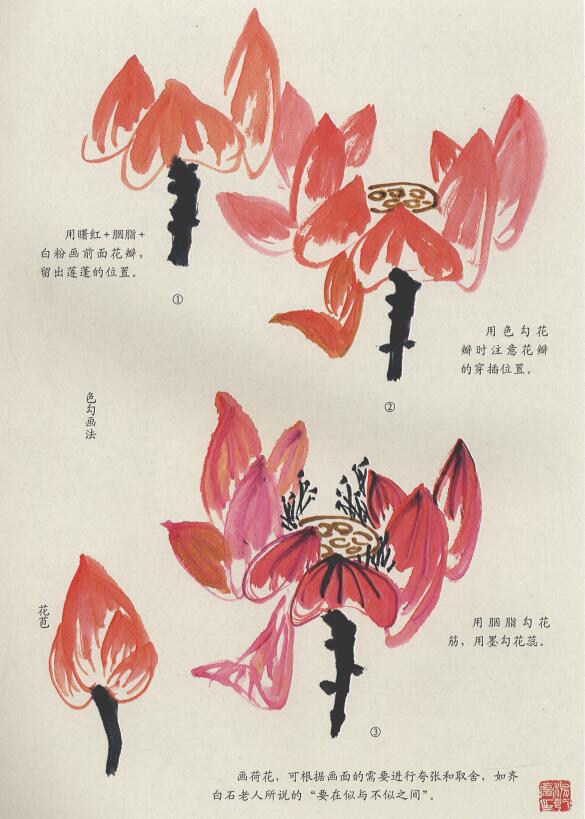 用曙红+胭脂+
白粉画前面花瓣，
留出莲蓬的位置。
①
用色勾花
瓣时注意花瓣
的穿插位置。
②
色勾画法
花苞
用胭脂勾花
筋，用墨勾花蕊。
③
画荷花，可根据画面的需要进行夸张和取舍，如齐
白石老人所说的“要在似与不似之间”。